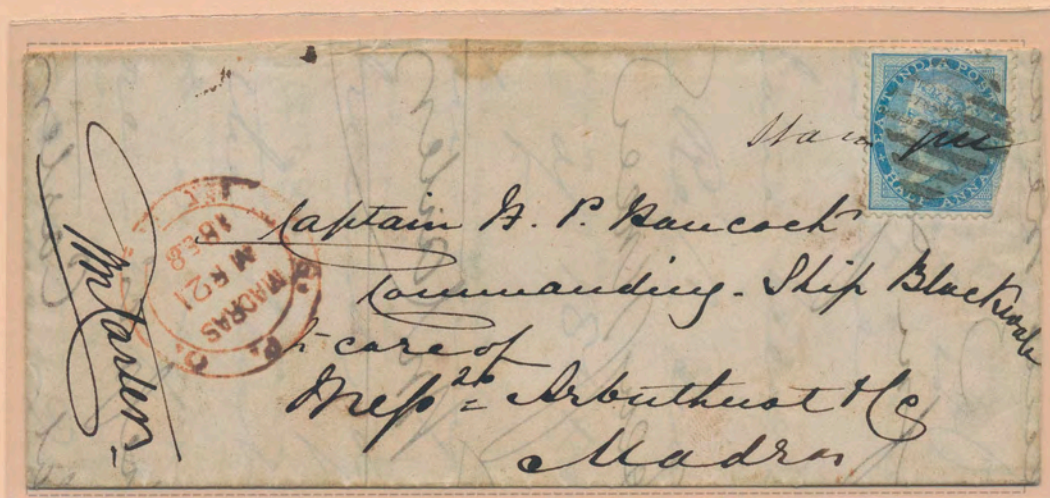 EAST INDIA POSTAGE
HALF ANNA
Captain H. P. Hancock
Commanding - Ship Blackwall
care of
Mess^rs Arbuthnot & Co
Madras
G. P. O.
MADRAS
MR 21
1858